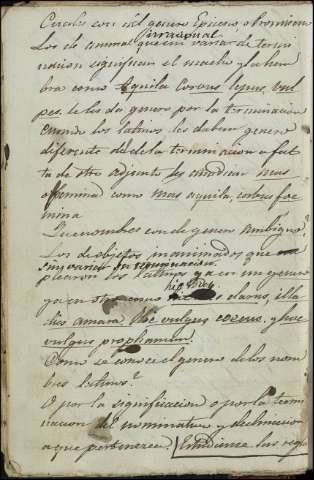 Cuales son del genero Epiceno, o Promiscuo
Los de animal irracional que sin variar de termi
nacion significan el macho y la hem
bra como Aquila Corvus lepus, vul
pes. se les da genero por la terminacion
cuando los latinos les daban genero
diferente del de la terminacion a fal
ta de otro adjunto les añadian mas
o femina como mas aquila, corbus foe
mina
Que nombres son de genero ambiguo?
Los de objetos inanimados que
sin variar su terminacion
plearon los latinos ya en un genero
ya en otro como hic dies clarus, illa
dies amara. Hoc vulgus
vulgus prophanum.
Como se conoce el genero de los nom
bres latinos?
O por la significacion o por la term
inacion del nominativo y declinacion
a que pertenecen. Estudianse las reglas